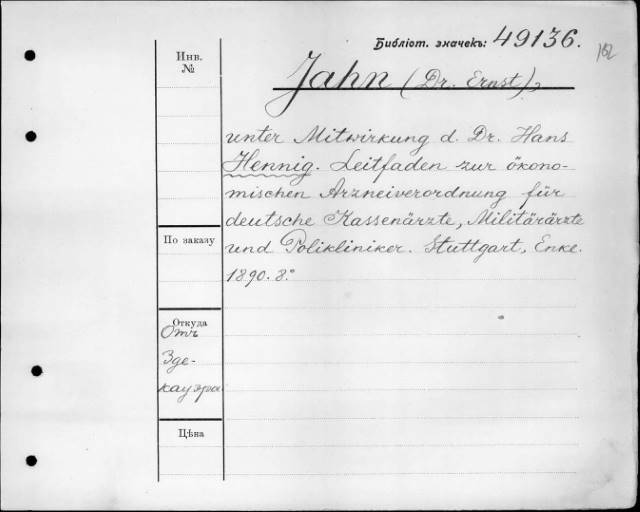 Библіот. значекъ: 49136.
162
Инв. №
Jahn (Dr. Ernst),
unter Mitwirkung d. Dr. Hans
Hennig. Leitfaden zur ökono-
mischen Arzneiverordnung für
deutsche Kassenärzte, Militärärzte
und Polikliniker. Stuttgart, Enke.
1890. 8.°
По заказу
Откуда
Отъ
Зде-
кауэра
Цѣна